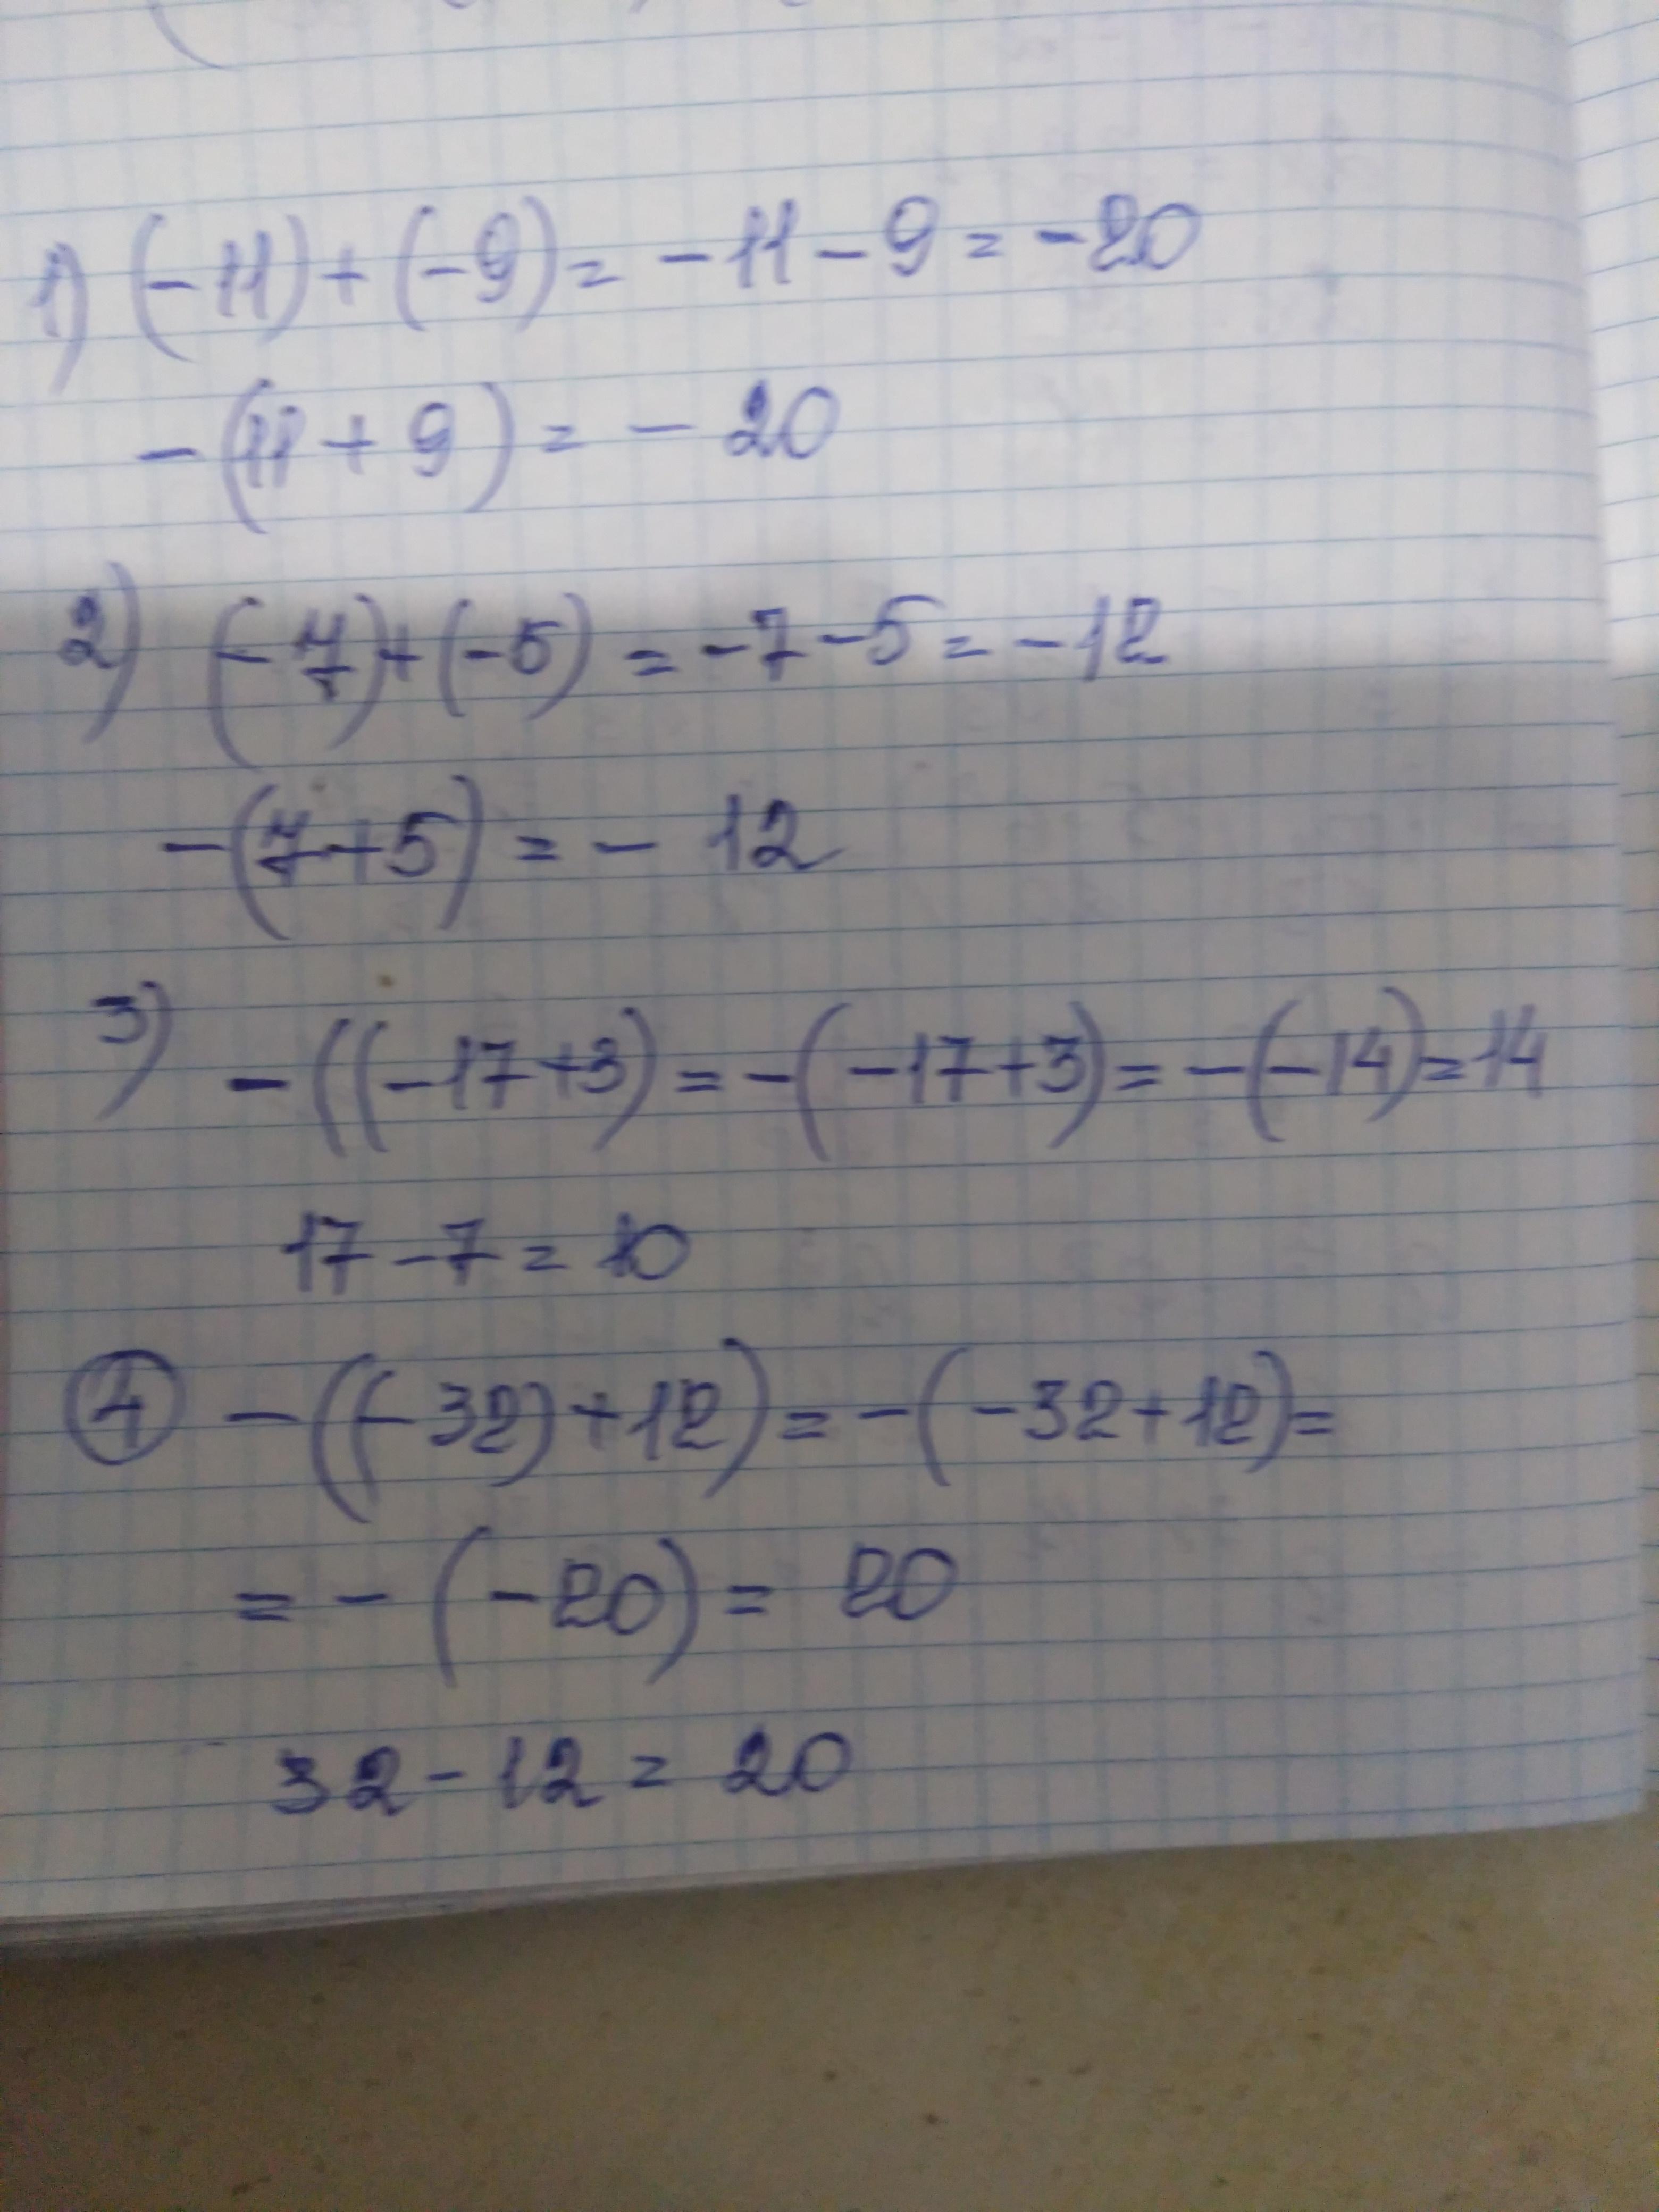 1) (-11)+(-9)= -11-9=-20
-(11+9)=-20
2) (-7)+(-5)=-7-5=-12
-(7+5)=-12
3) -((-17+3)=-(-17+3)=-(-14)=14
17-7=10
4 -((-32)+12)=-(-32+12)=
=-(-20)=20
32-12=20